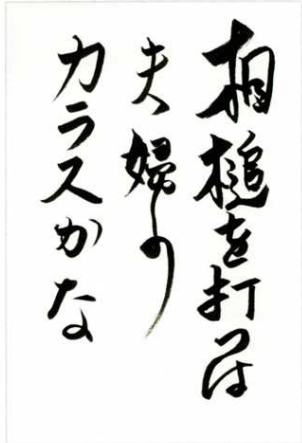 相槌を打つは
夫婦の
カラスかな